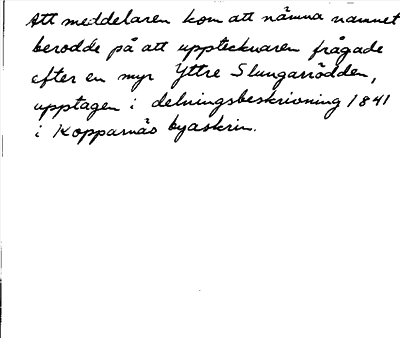 Att meddelaren kom att nämna namnet
berodde på att upptecknaren frågade
efter en myr Yttre Slungarrödden,
upptagen i delningsbeskrivning 1841
i Kopparnäs byaskrin.